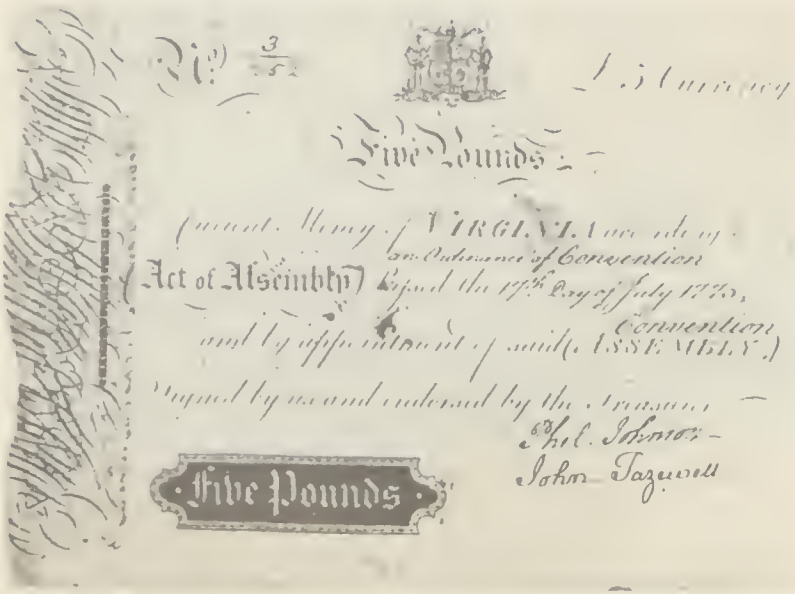 No. 3
£ 5 Currency
Five Pounds
Current Money of VIRGINIA according
an Ordinance of Convention
Act of Assembly) Passed the 17th Day of July 1775,
Convention
and by appointment of said (ASSEMBLY.)
Signed by us and endorsed by the Treasurer
Phil. Johnson
John Tazewell
Five Pounds